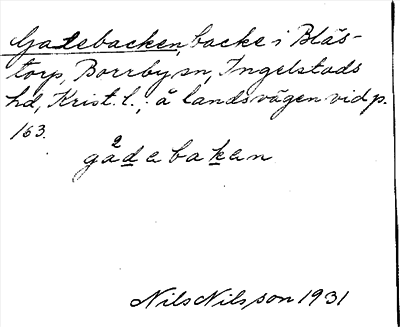 Gatebacken, backe i Blås-
torp, Borrby sn, Ingelstads
hd, Krist. l.; å landsvägen vid p.
163.
gå²debaken
Nils Nilsson 1931